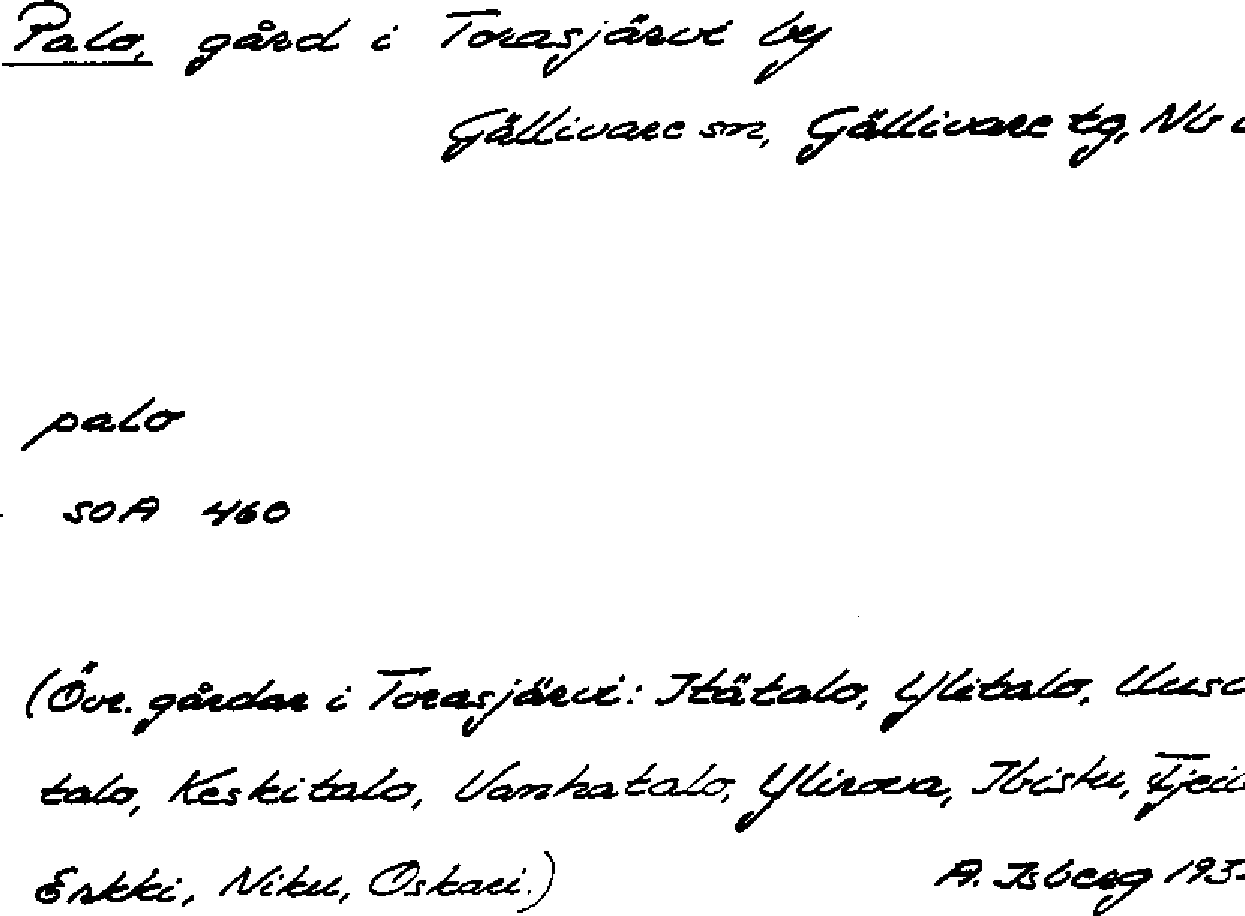 Palo, gård i Torasjärvi by
Gällivare sn, Gällivare tg, Nb
palo
SOA 460
(Övr. gårdar i Torasjärvi: Itätalo, Ylitalo, Uusi
talo, Keskitalo, Vanhatalo, Ylirova, Ibisku,
Erkki, Niku, Oskari.)
A. Isberg 193